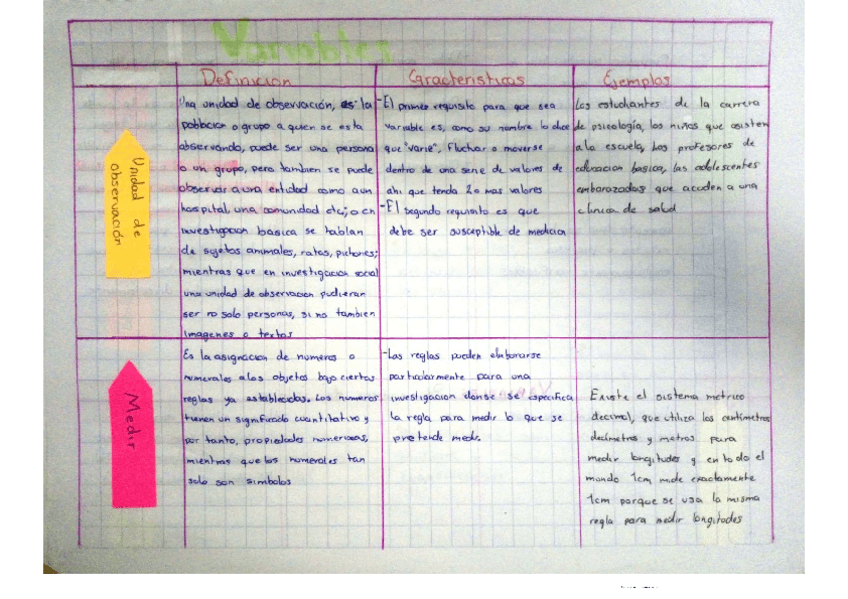 Variables
Definicion
Caracteristicas
Ejemplos
Unidad de
observación
Una unidad de observación, es la
poblacion o grupo a quien se esta
observando, puede ser una persona
o un grupo, pero tambien se puede
observar a una entidad como a un
hospital, una comunidad etc; o en
investigacion basica se hablan
de sujetos animales, ratas, pichones;
mientras que en investigacion social
una unidad de observacion pudieran
ser no solo personas, si no tambien
imagenes o textos
-El primer requisito para que sea
variable es, como su nombre lo dice
que "varie", fluctuar o moverse
dentro de una serie de valores de
ahi que tenda 2 o mas valores
-El segundo requisito es que
debe ser susceptible de medicion
Los estudiantes de la carrera
de psicología, los niños que asisten
a la escuela, los profesores de
educacion basica, las adolescentes
embarazadas que acuden a una
clinica de salud
Medir
Es la asignacion de numeros o
numerales a los objetos bajo ciertas
reglas ya establecidas. Los numeros
tienen un significado cuantitativo y
por tanto, propiedades numericas,
mientras que los numerales tan
solo son simbolos
-Las reglas pueden elaborarse
particularmente para una
investigacion donde se especifica
la regla para medir lo que se
pretende medir.
Existe el sistema metrico
decimal, que utiliza los centimetros
decimetros y metros para
medir longitudes y en todo el
mundo 1cm mide exactamente
1cm porque se usa la misma
regla para medir longitudes